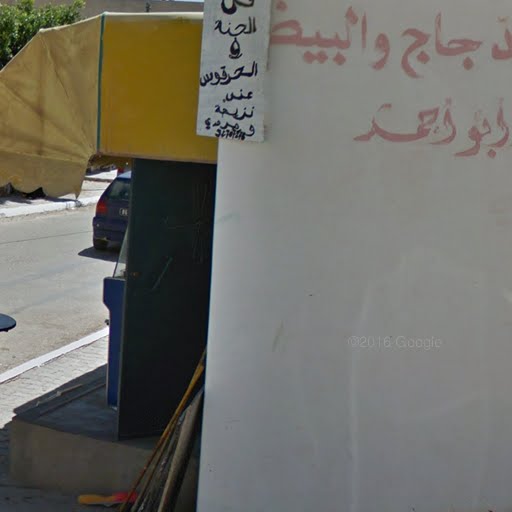 الحنة
الحرقوس
عند
نزيهة
الدجاج والبيض
أبو أحمد
©2016 Google